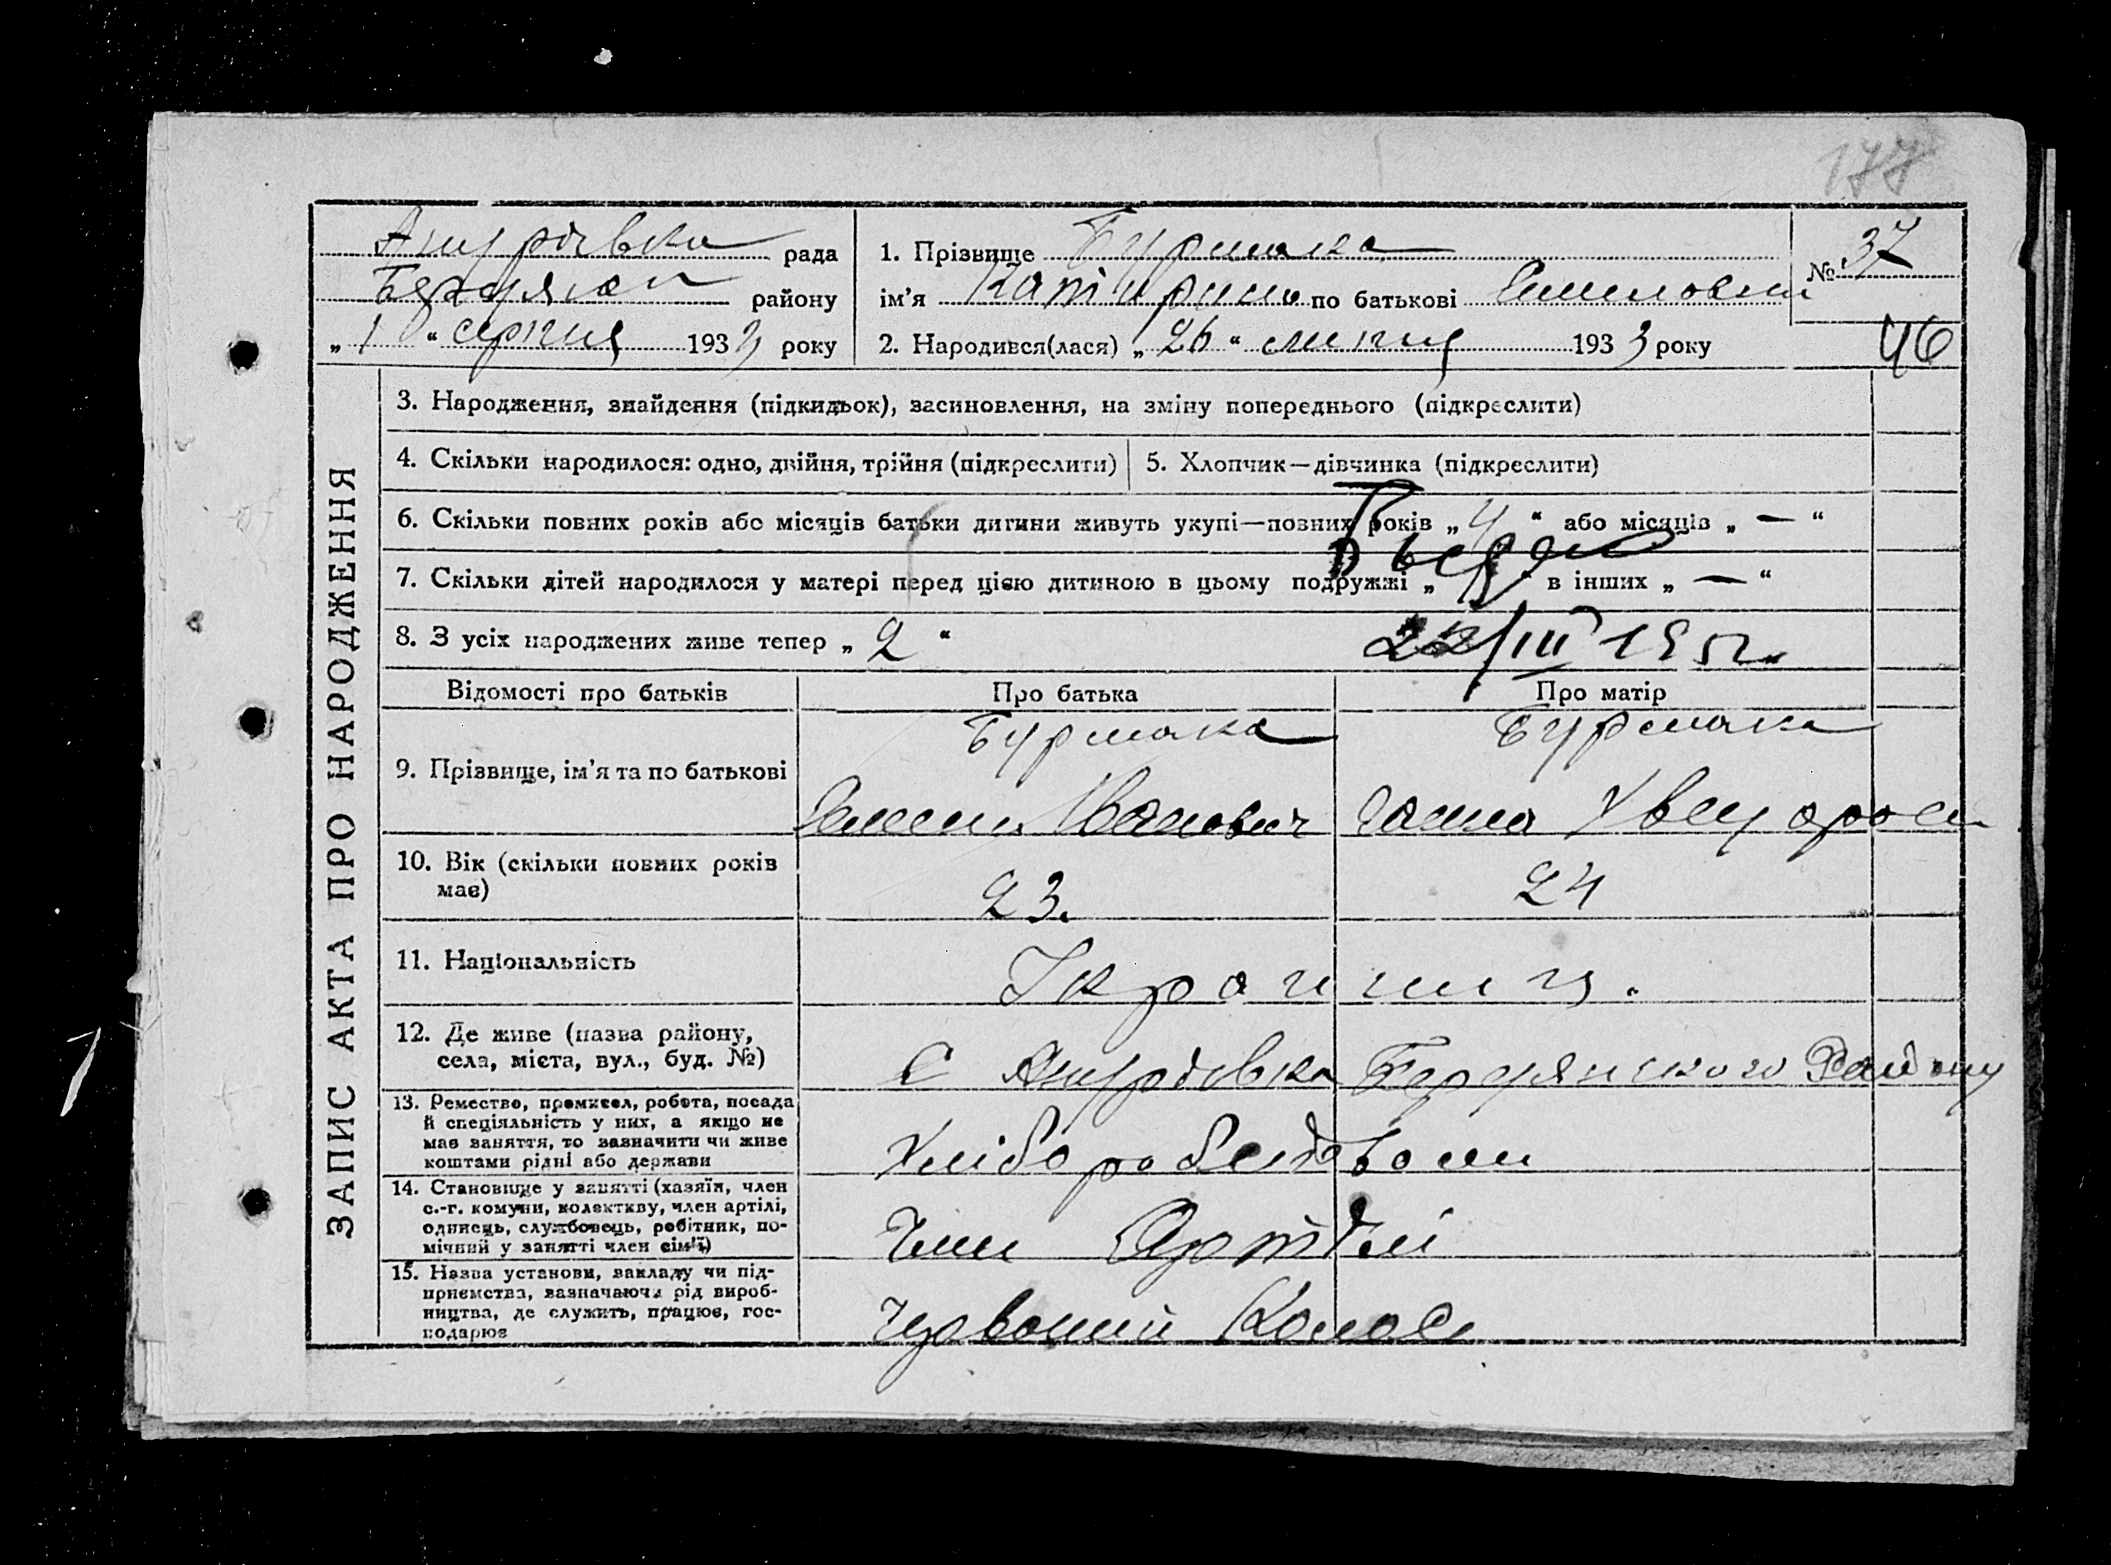 177
Андрівка рада
Бердянськ району
„ 10 “ серпня 1933 року
1. Прізвище Бурмака
ім’я Катирина по батькові
№ 37
2. Народився(лася) „ 26 “ липня 1933 року
46
ЗАПИС АКТА ПРО НАРОДЖЕННЯ
3. Народження, знайдення (підкидьок), засиновлення, на зміну попереднього (підкреслити)
4. Скільки народилося: одно, двійня, трійня (підкреслити) 5. Хлопчик—дівчинка (підкреслити)
6. Скільки повних років або місяців батьки дитини живуть укупі—повних років „ 4 “ або місяців „ — “
7. Скільки дітей народилося у матері перед цією дитиною в цьому подружжі „ “ в інших „ — “
8. З усіх народжених живе тепер „ 2 “
22/III 195
Відомості про батьків Про батька Про матір
9. Прізвище, ім’я та по батькові
Бурмака Бурмака
Іванович
10. Вік (скільки повних років
має)
23. 24
11. Національність
Україниця.
12. Де живе (назва району,
села, міста, вул., буд. №)
С Андрівка Бердянского Району
13. Ремество, промисел, робота, посада
й спеціяльність у них, а якщо не
має заняття, то зазначити чи живе
коштами рідні або держави
14. Становище у занятті (хазяїн, член
с.-г. комуни, колективу, член артілі,
одинець, службовець, робітник, по-
мічний у занятті член сім’ї)
Член Артілі
15. Назва установи, закладу чи під-
приємства, зазначаючи рід вироб-
ництва, де служить, працює, гос-
подарює
Червоний Колос